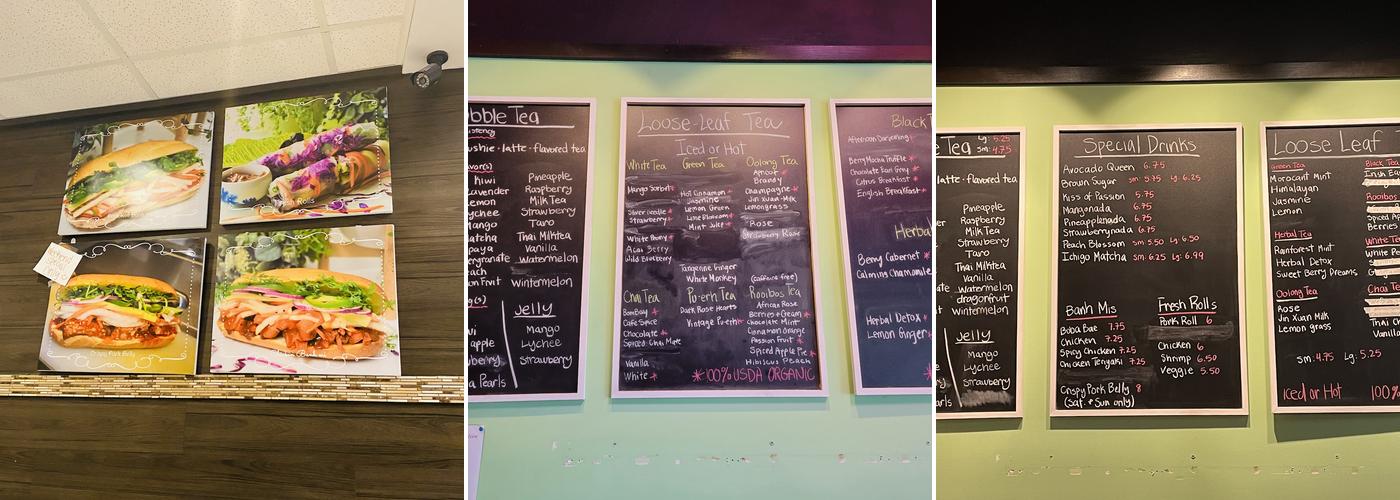 Fresh Rolls
Crispy Pork Belly
bble Tea
ushie • latte • flavored tea
Kiwi
Pineapple
Raspberry
Milk Tea
Strawberry
Taro
Thai Milktea
Vanilla
Watermelon
Wintermelon
Jelly
Mango
Lychee
Strawberry
a Pearls
Loose-Leaf Tea
Iced or Hot
White Tea
Mango Sorbet
Silver Needle
Strawberry
White Peony
Acai Berry
Wild Blueberry
Green Tea
Jasmine
Lemon Green
Mint Julep
Tangerine Ginger
White Monkey
Oolong Tea
Apricot
Brandy
Champagne
Jin Xuan Milk
Lemongrass
Rose
Strawberry Rose
Chai Tea
Bombay
Cafe Spice
Chocolate
Spiced Chai Mate
Vanilla
White
Pu-erh Tea
Dark Rose Hearts
Vintage Pu-erh
(caffeine free)
Rooibos Tea
African Rose
Berries & Cream
Chocolate Mint
Cinnamon Orange
Passion Fruit
Spiced Apple Pie
Hibiscus Peach
*100% USDA ORGANIC
Black T
Afternoon Darjeeling
Berry Mocha Truffle
Chocolate Earl Grey
Citrus Breakfast
English Breakfast
Herbal
Berry Cabernet
Calming Chamomile
Herbal Detox
Lemon Ginger
Tea
Lg: 5.25
sm: 4.75
latte • flavored tea
Pineapple
Raspberry
Milk Tea
Strawberry
Taro
Thai Milktea
Vanilla
Watermelon
dragonfruit
Wintermelon
Jelly
Mango
Lychee
Strawberry
Special Drinks
Avocado Queen 6.75
Brown Sugar sm 5.75 Lg 6.25
Kiss of Passion 5.75
Mangonada 6.75
Pineapplenada 6.75
Strawberrynada 6.75
Peach Blossom sm 5.50 Lg 6.50
Ichigo Matcha sm: 6.25 Lg: 6.99
Banh Mis
Boba Bae 7.75
Chicken 7.25
Spicy Chicken 7.25
Chicken Teriyaki 7.25
Crispy Pork Belly 8
(Sat. & Sun only)
Fresh Rolls
Pork Roll 6
Chicken 6
Shrimp 6.50
Veggie 5.50
Loose Leaf
Green Tea
Morocant Mint
Himalayan
Jasmine
Lemon
Herbal Tea
Rainforest Mint
Herbal Detox
Sweet Berry Dreams
Oolong Tea
Rose
Jin Xuan Milk
Lemon grass
Black Tea
Rooibos
Spiced Ap
Berries
White Te
Chai Te
Thai
Vanilla
sm: 4.75 Lg: 5.25
Iced or Hot
100%